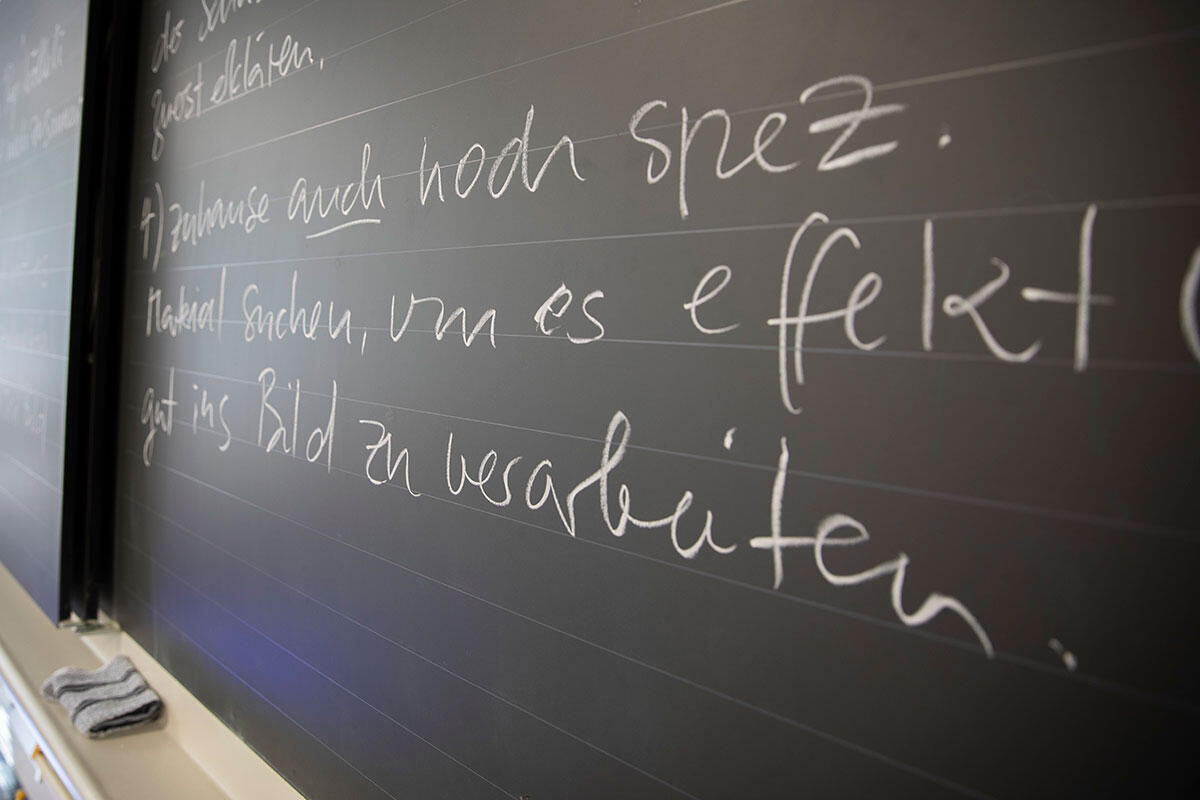 der
zuerst erklären.
4) Zuhause auch noch spez.
Material suchen, um es effekt
gut ins Bild zu verarbeiten.